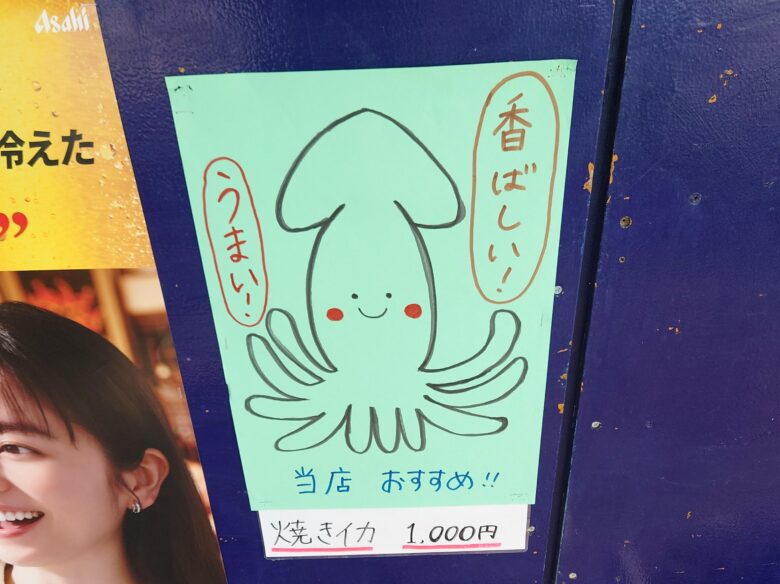 Asahi
冷えた
”
香ばしい!
うまい!
当店 おすすめ!!
焼きイカ 1,000円